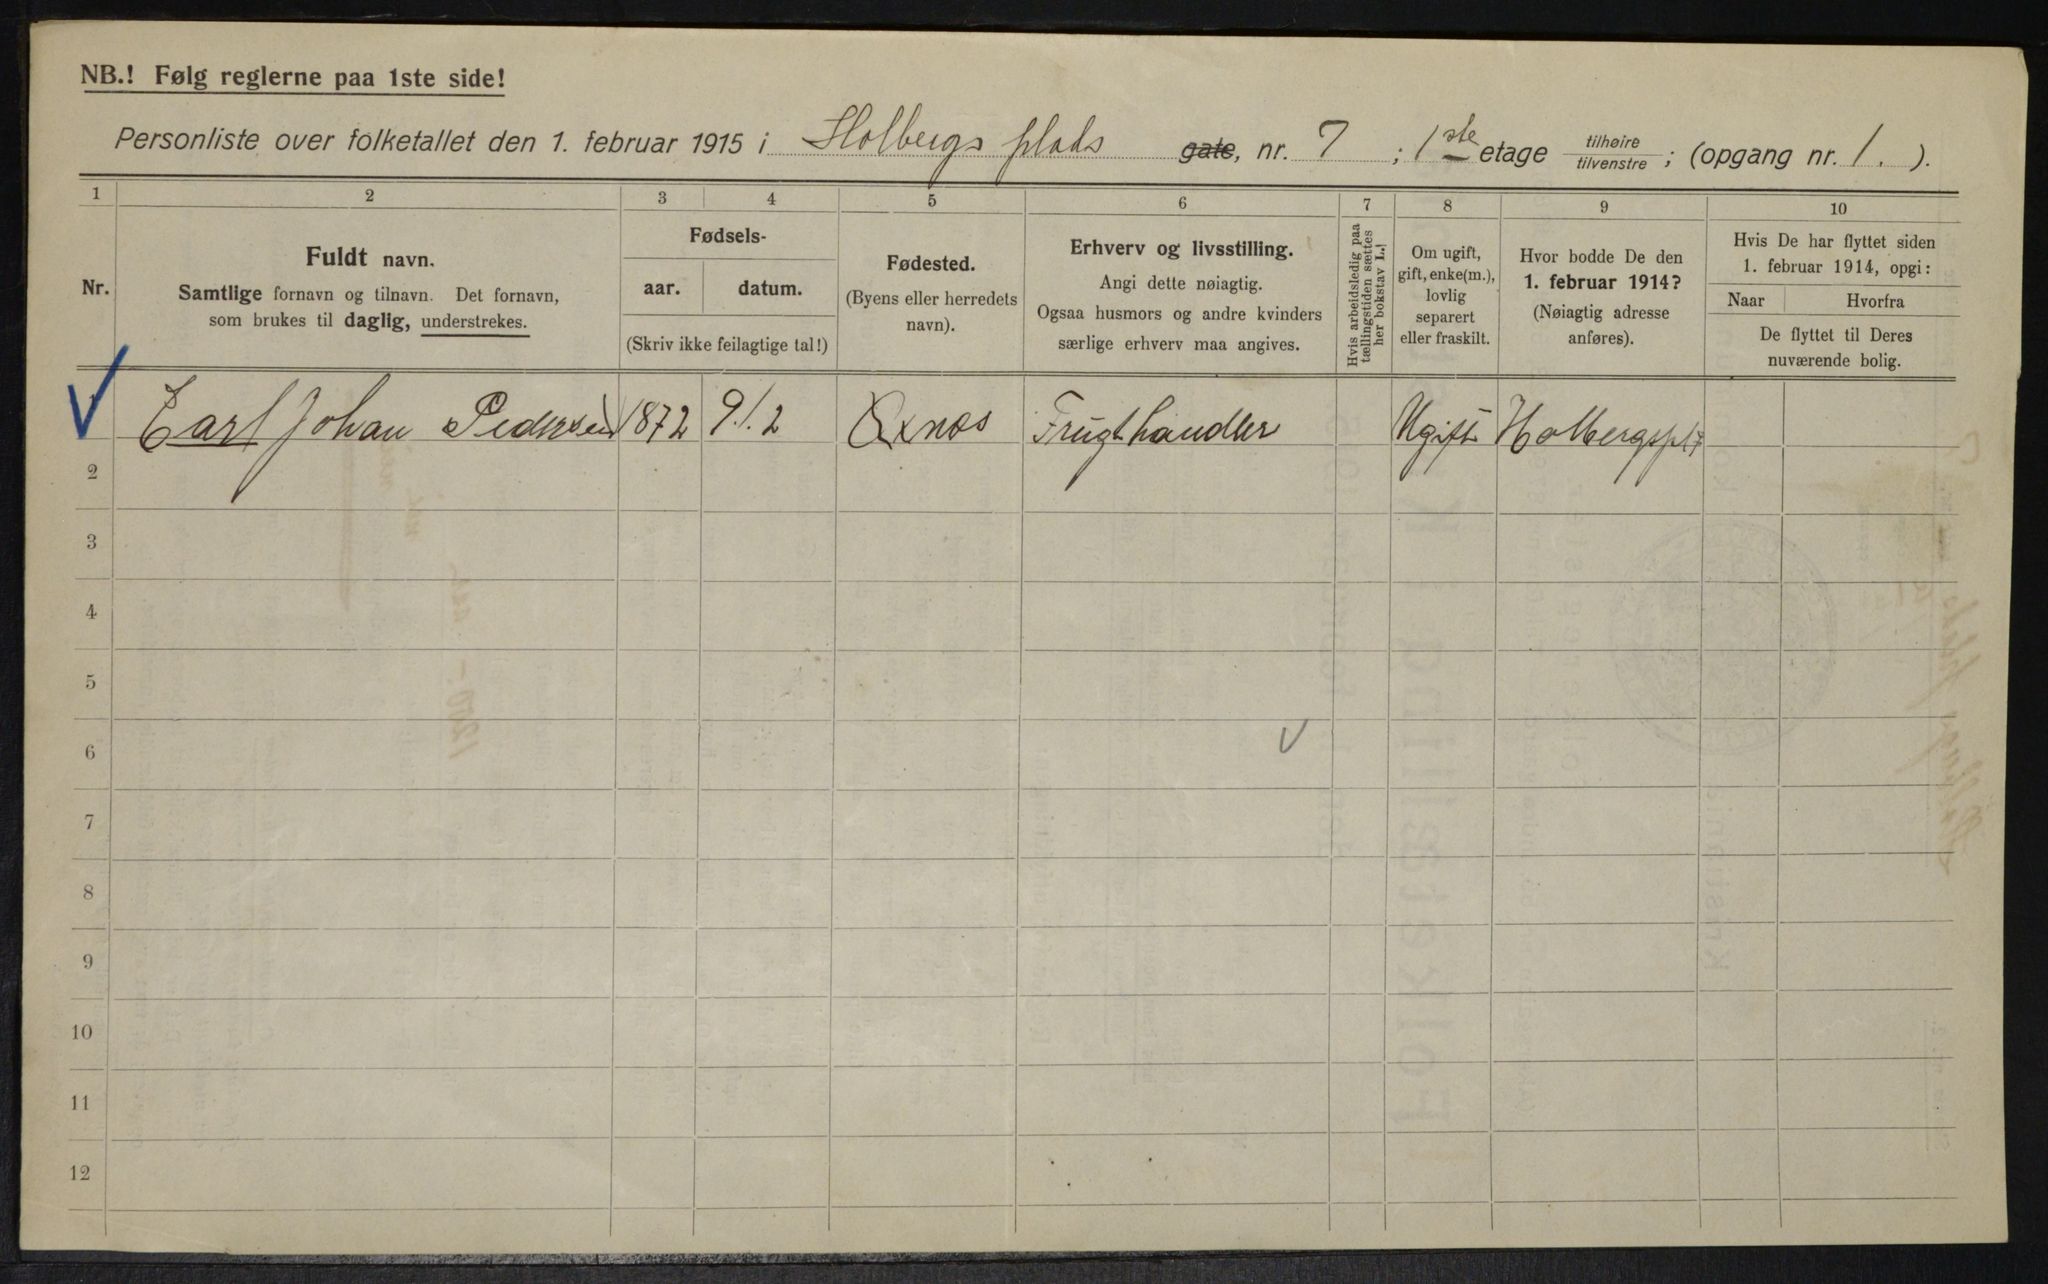 NB.! Følg reglerne paa 1ste side!
Personliste over folketallet den 1. februar 1915 i Holbergs plads gate, nr. 7 ; 1ste etage tilhøire / tilvenstre ; (opgang nr. 1. ).
1 2 3 4 5 6 7 8 9 10
Nr.
Fuldt navn.
Samtlige fornavn og tilnavn. Det fornavn,
som brukes til daglig, understrekes.
Fødsels-
aar. datum.
(Skriv ikke feilagtige tal!)
Fødested.
(Byens eller herredets
navn).
Erhverv og livsstilling.
Angi dette nøiagtig.
Ogsaa husmors og andre kvinders
særlige erhverv maa angives.
Hvis arbeidsledig paa
tællingstiden sættes
her bokstav L.!
Om ugift,
gift, enke(m.),
lovlig
separert
eller fraskilt.
Hvor bodde De den
1. februar 1914?
(Nøiagtig adresse
anføres).
Hvis De har flyttet siden
1. februar 1914, opgi:
Naar Hvorfra
De flyttet til Deres
nuværende bolig.
Carl Johan Pedersen 1872 9/2 Frugthandler Ugift Holbergspl 7
2
3
4
5
6
7
8
9
10
11
12